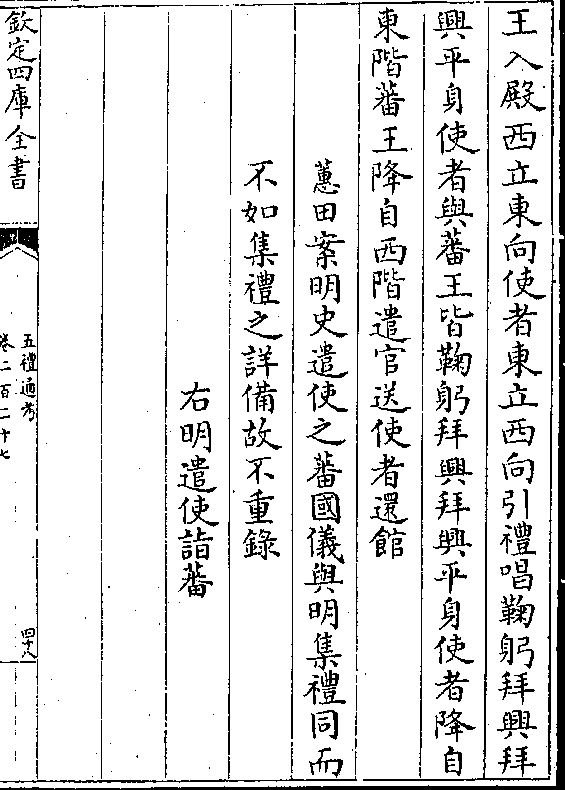 王入殿西立東向使者東立西向引禮唱鞠躬拜興拜
興平身使者與蕃王皆鞠躬拜興拜興平身使者降自
東階蕃王降自西階遣官送使者還館
蕙田案明史遣使之蕃國儀與明集禮同而
不如集禮之詳備故不重錄
右明遣使詣蕃
欽定四庫全書
五禮通考
卷二百二十七
四十八